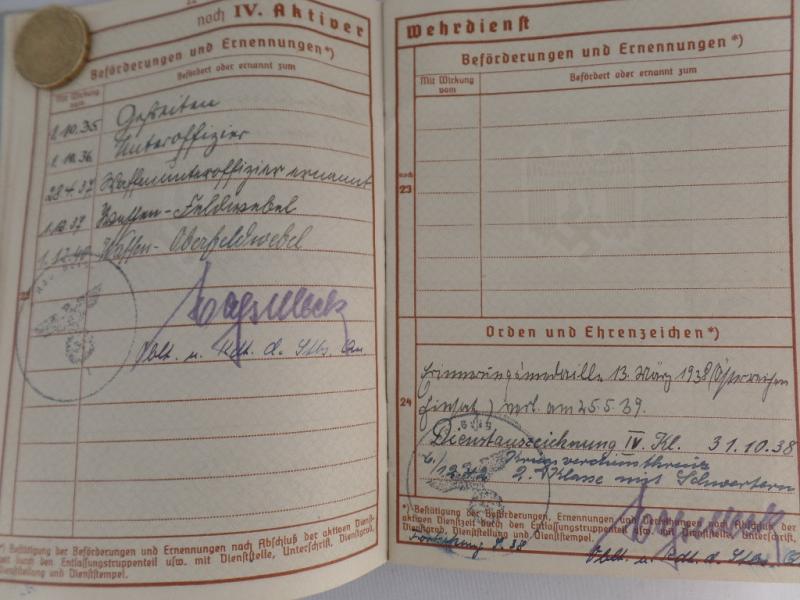 22
noch IV. Aktiver
Beförderungen und Ernennungen*)
Mit Wirkung vom
Befördert oder ernannt zum
1.10.35. Gefreiten
1.10.36. Unteroffizier
28.4.37 Waffenunteroffizier ernannt
1.10.37 Waffen-Feldwebel
1.12.40 Waffen-Oberfeldwebel
22
Oblt. u. Kdt. d. Stbs.
*) Bestätigung der Beförderungen und Ernennungen nach Abschluß der aktiven Dienst-
zeit durch den Entlassungstruppenteil usw. mit Dienststelle, Unterschrift, Dienstgrad,
Dienststellung und Dienststempel.
Wehrdienst
Beförderungen und Ernennungen*)
Mit Wirkung vom
Befördert oder ernannt zum
noch
23
Orden und Ehrenzeichen*)
24
Erinnerungsmedaille 13. März 1938 (Österreichen
Einsatz) verl. am 25.5.39.
Dienstauszeichnung IV. Kl. 31.10.38
Kriegsverdienstkreuz
2. Klasse mit Schwertern
*) Bestätigung der Beförderungen, Ernennungen und Verleihungen nach Abschluß der
aktiven Dienstzeit durch den Entlassungstruppenteil usw. mit Dienststelle, Unterschrift,
Dienstgrad, Dienststellung und Dienststempel.
Oblt. u. Kdt. d. Stbs